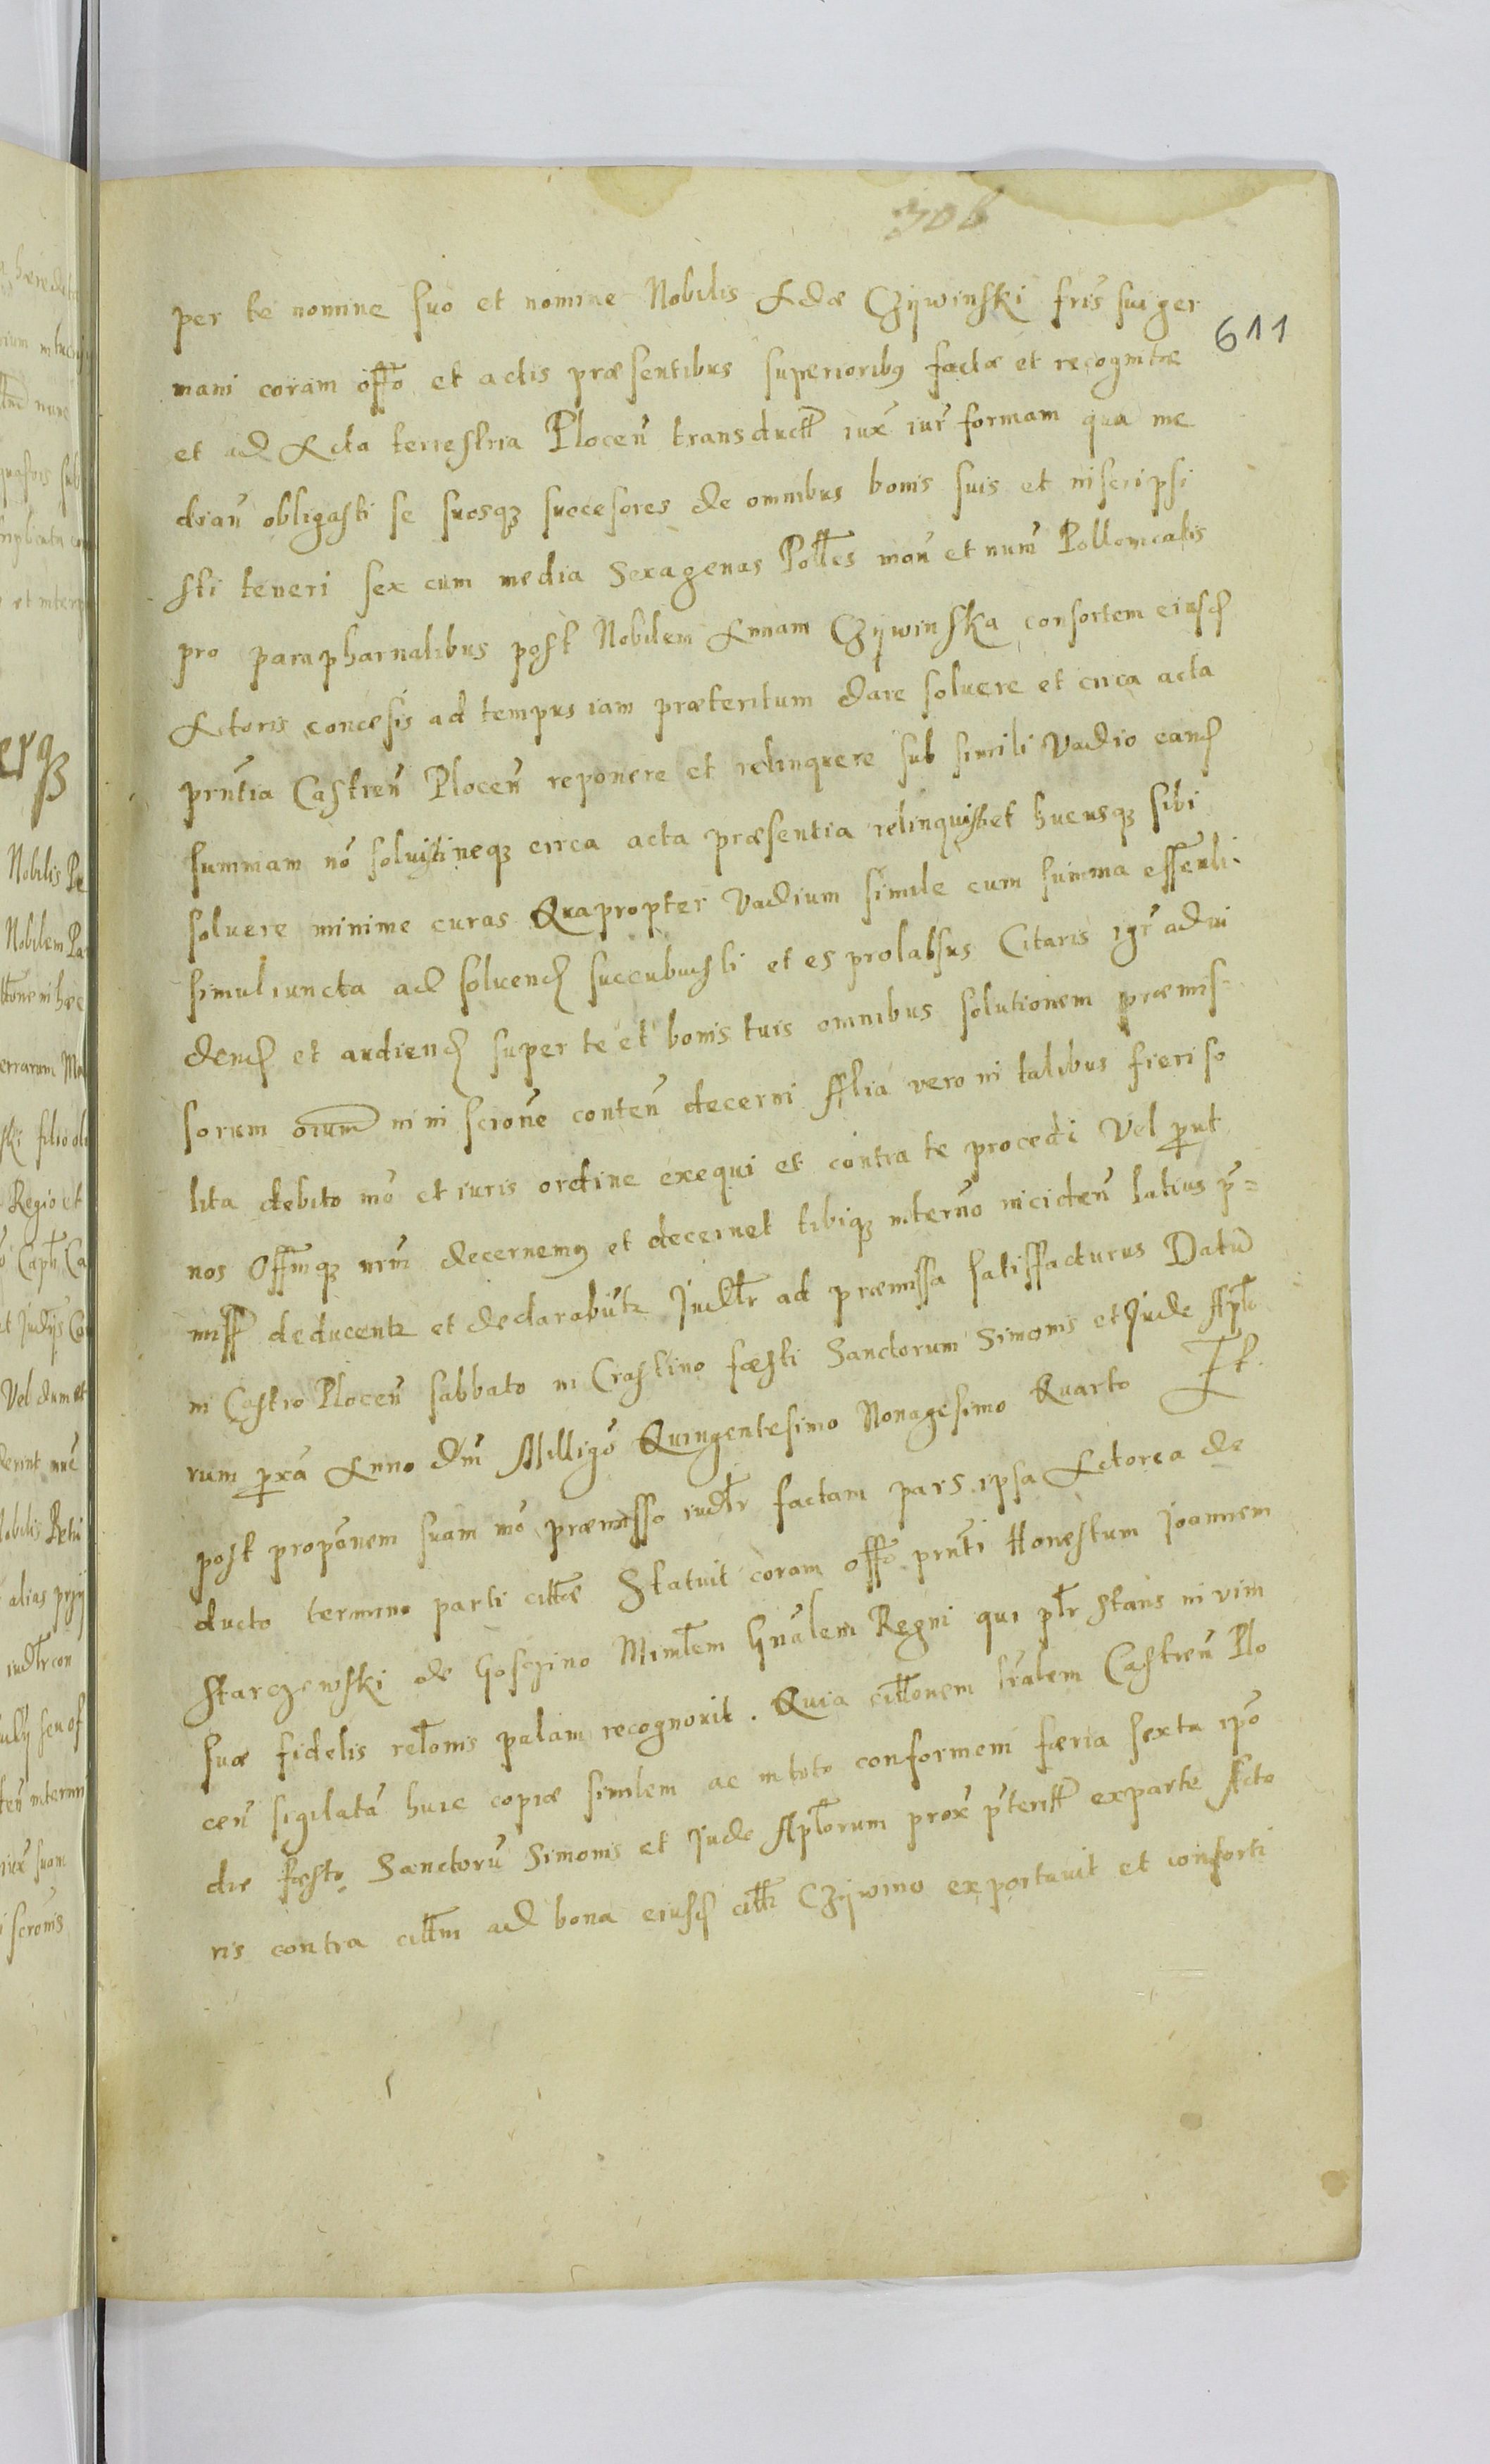 306
611
per te nomine suo et nomine Nobilis Adæ Czÿwinski fris sui ger
mani coram offo et actis præsentibus superiorib9 factæ et recognitæ
et ad Acta terrestria Plocen̄ transductt iux̄ iur̄ formam qua me
dian̄ obligasti se suosqʒ succesores de omnibus bonis suis et inscripsi
sti teneri sex cum media Sexagenas Polles mon̄ et num̄ Pollonicalis
pro parapharnalibus post Nobilem Annam Czÿwinska consortem eiusd
Actoris concesis ad tempus iam præteritum dare soluere et circa acta
prn̄tia Castren̄ Plocen̄ reponere et relinquere sub simili vadio eand
summam nō soluisti neqʒ circa acta præsentia relinquis et hucusqʒ sibi
soluere minime curas Quapropter vadium simile cum summa essen̄li
simul iuncta ad soluend succubuisti et es prolabsus Citaris igr̄ ad vi
dend et audiend super te et bonis tuis omnibus solutionem præmis-
sorum oīum in inscrōne conten̄ decerni Alia vero in talibus fieri so
lita debito mō et iuris ordine exequi et contra te procedi Vel prout
nos Offmqʒ nrm̄ decernem9 et decernet tibiqʒ intermo inciden̄ latius p̄=
miss deducentr et declarabūtr Judr ad præmissa satisffacturus Datū
in Castro Plocen̄ sabbato in Crastino fæsti Sanctorum Simonis et Judæ Aplo
rum pxā Anno dn̄i Milligō Quingentesimo Nonagesimo Quarto Et
post propōnem suam mō præmisso iudr factam pars ipsa Actorea de
ducto termino parti cittæ Statuit coram offo prn̄ti Honestum Joannem
Starczewski de Goslzino Minilem Gnālem Regni qui plr stans in vim
suæ fidelis relonis palam recognovit. Quia cittonem lr̄alem Castren̄ Plo
cen̄ sigilatā huic copiæ similem ac in toto conformem færia sexta ipō
die festo Sanctorū Simonis et Judæ Aplorum prox̄ p̄teritt ex parte Acto
ris contra cittm ad bona eiusd citti Czÿwino exportavit et consorti